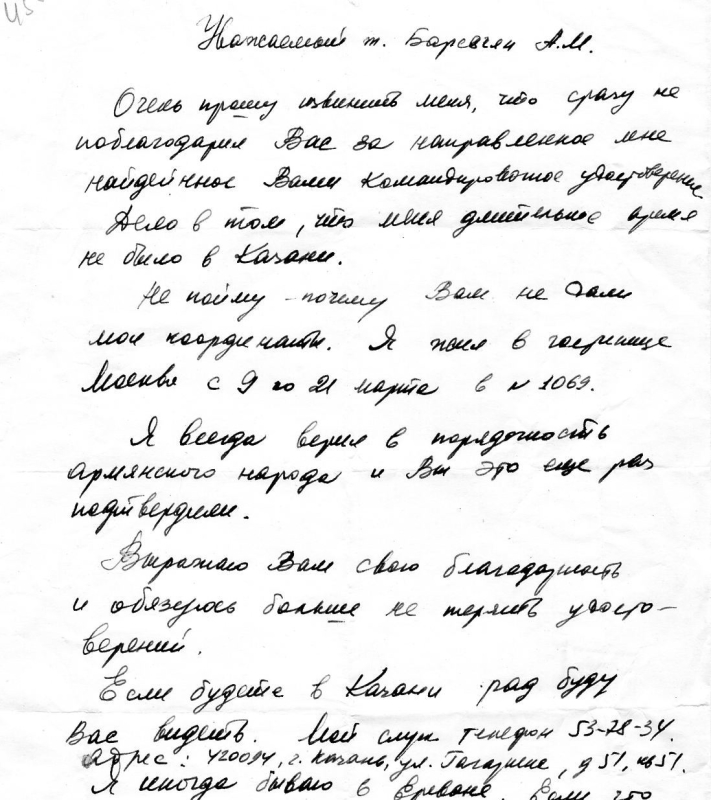 45
Уважаемый т. Барсегян А.М.
Очень прошу извинить меня, что сразу не
поблагодарил Вас за направленное мне
найденное Вами командировочное удостоверение
Дело в том, что меня длительное время
не было в Казани.
Не пойму - почему Вам не дали
мои координаты. Я жил в гостинице
Москва с 9 по 21 марта в № 1069.
Я всегда верил в порядочность
армянского народа и Вы это еще раз
подтвердили.
Выражаю Вам свою благодарность
и обязуюсь больше не терять удосто-
верений.
Если будете в Казани рад буду
Вас видеть. Мой служ телефон 53-78-34.
адрес: г. Казань, ул. Гагарина, д 51, кв 51.
Я иногда бываю в Ереване. Если что